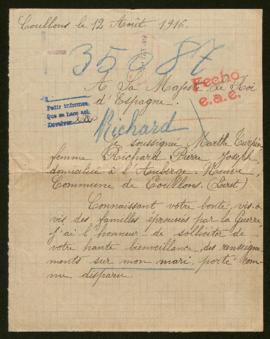 Coullons le 12 Août 1916.
35087
A Sa Majesté le Roi
d'Espagne.
Fecho
e.a.e.
Pedir informes.
Que se hace así.
Richard
Je soussignée Marthe
femme Richard Pierre Joseph,
domiciliée à l'Auberge Neuve,
Commune de Coullons. (Loiret)
Connaissant votre bonté vis à
vis des familles éprouvées par la Guerre
j'ai l'honneur de solliciter de
votre haute bienveillance, des renseigne
ments sur mon mari, porté com
me disparu